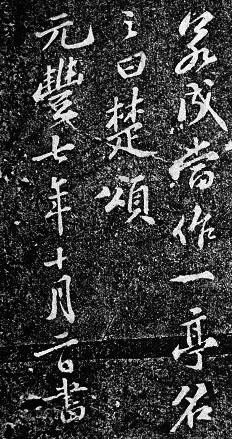 若成當作一亭名
之曰楚頌
元豐七年十月二日書